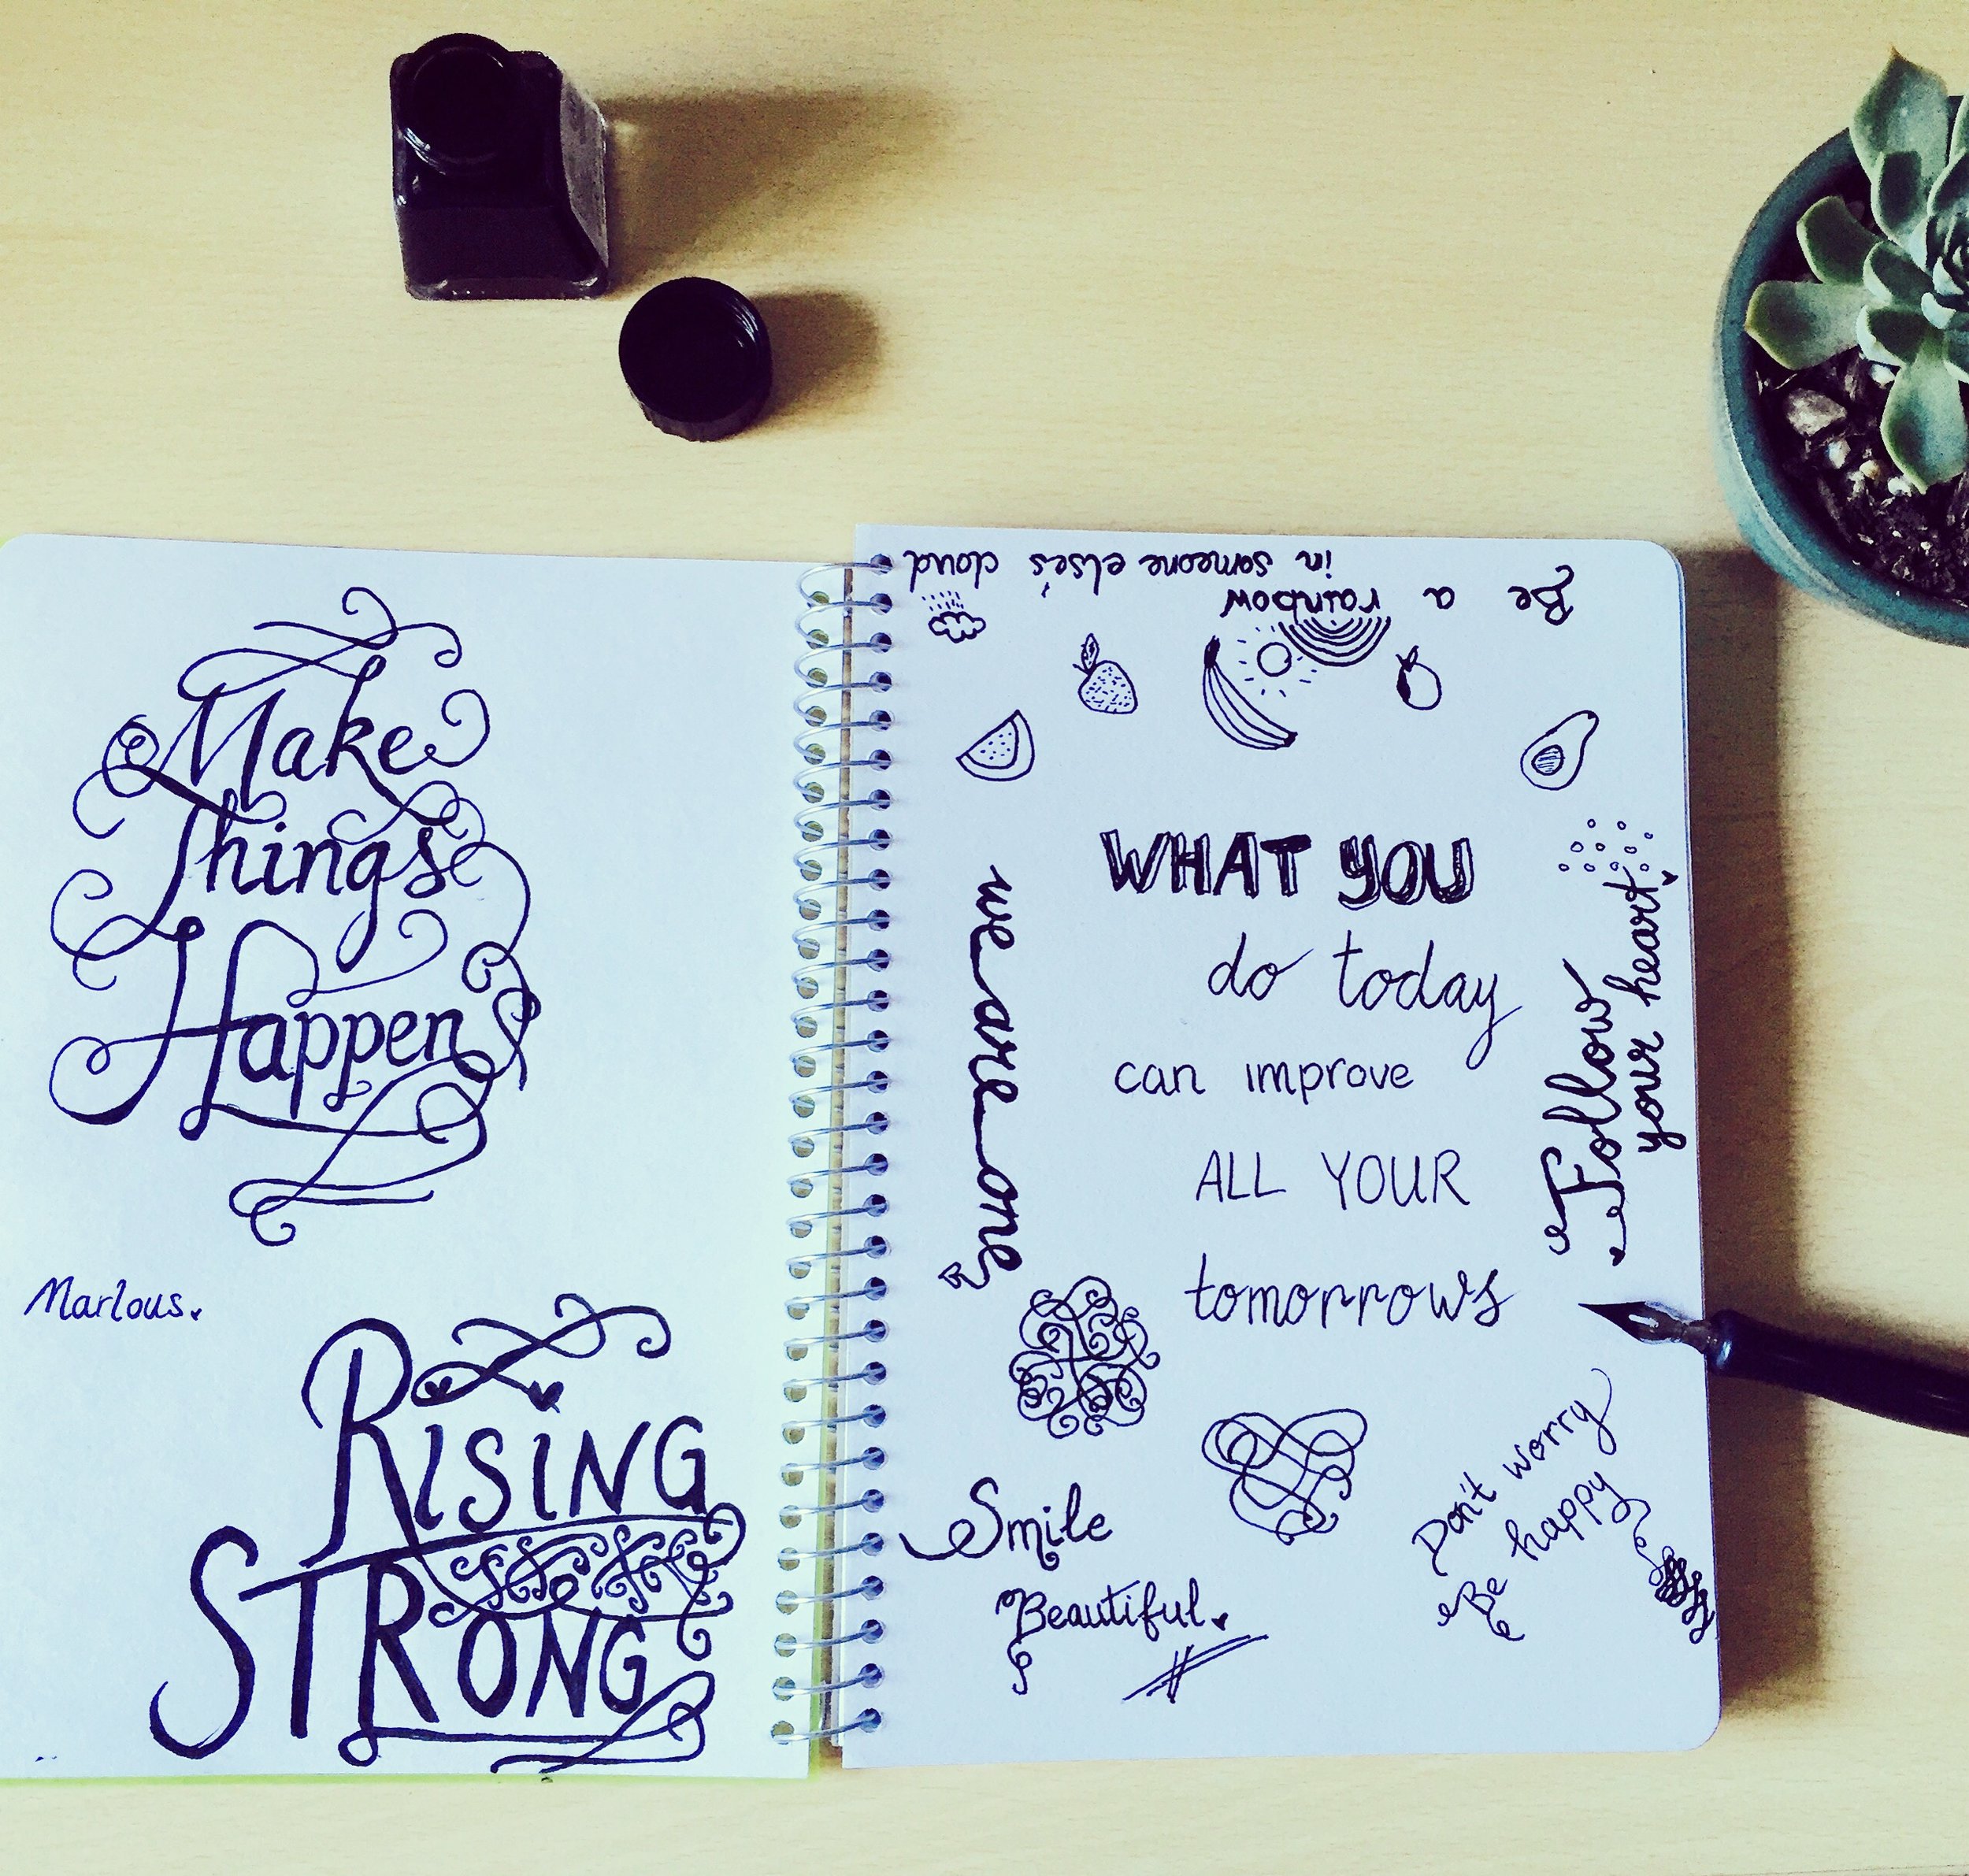 Make
Things
Happen
Marlous.
RISING
STRONG
Be a rainbow
in someone else's cloud
we are one
WHAT YOU
do today
can improve
ALL YOUR
tomorrows
Follow
your heart
Smile
Beautiful.
Don't worry
Be happy